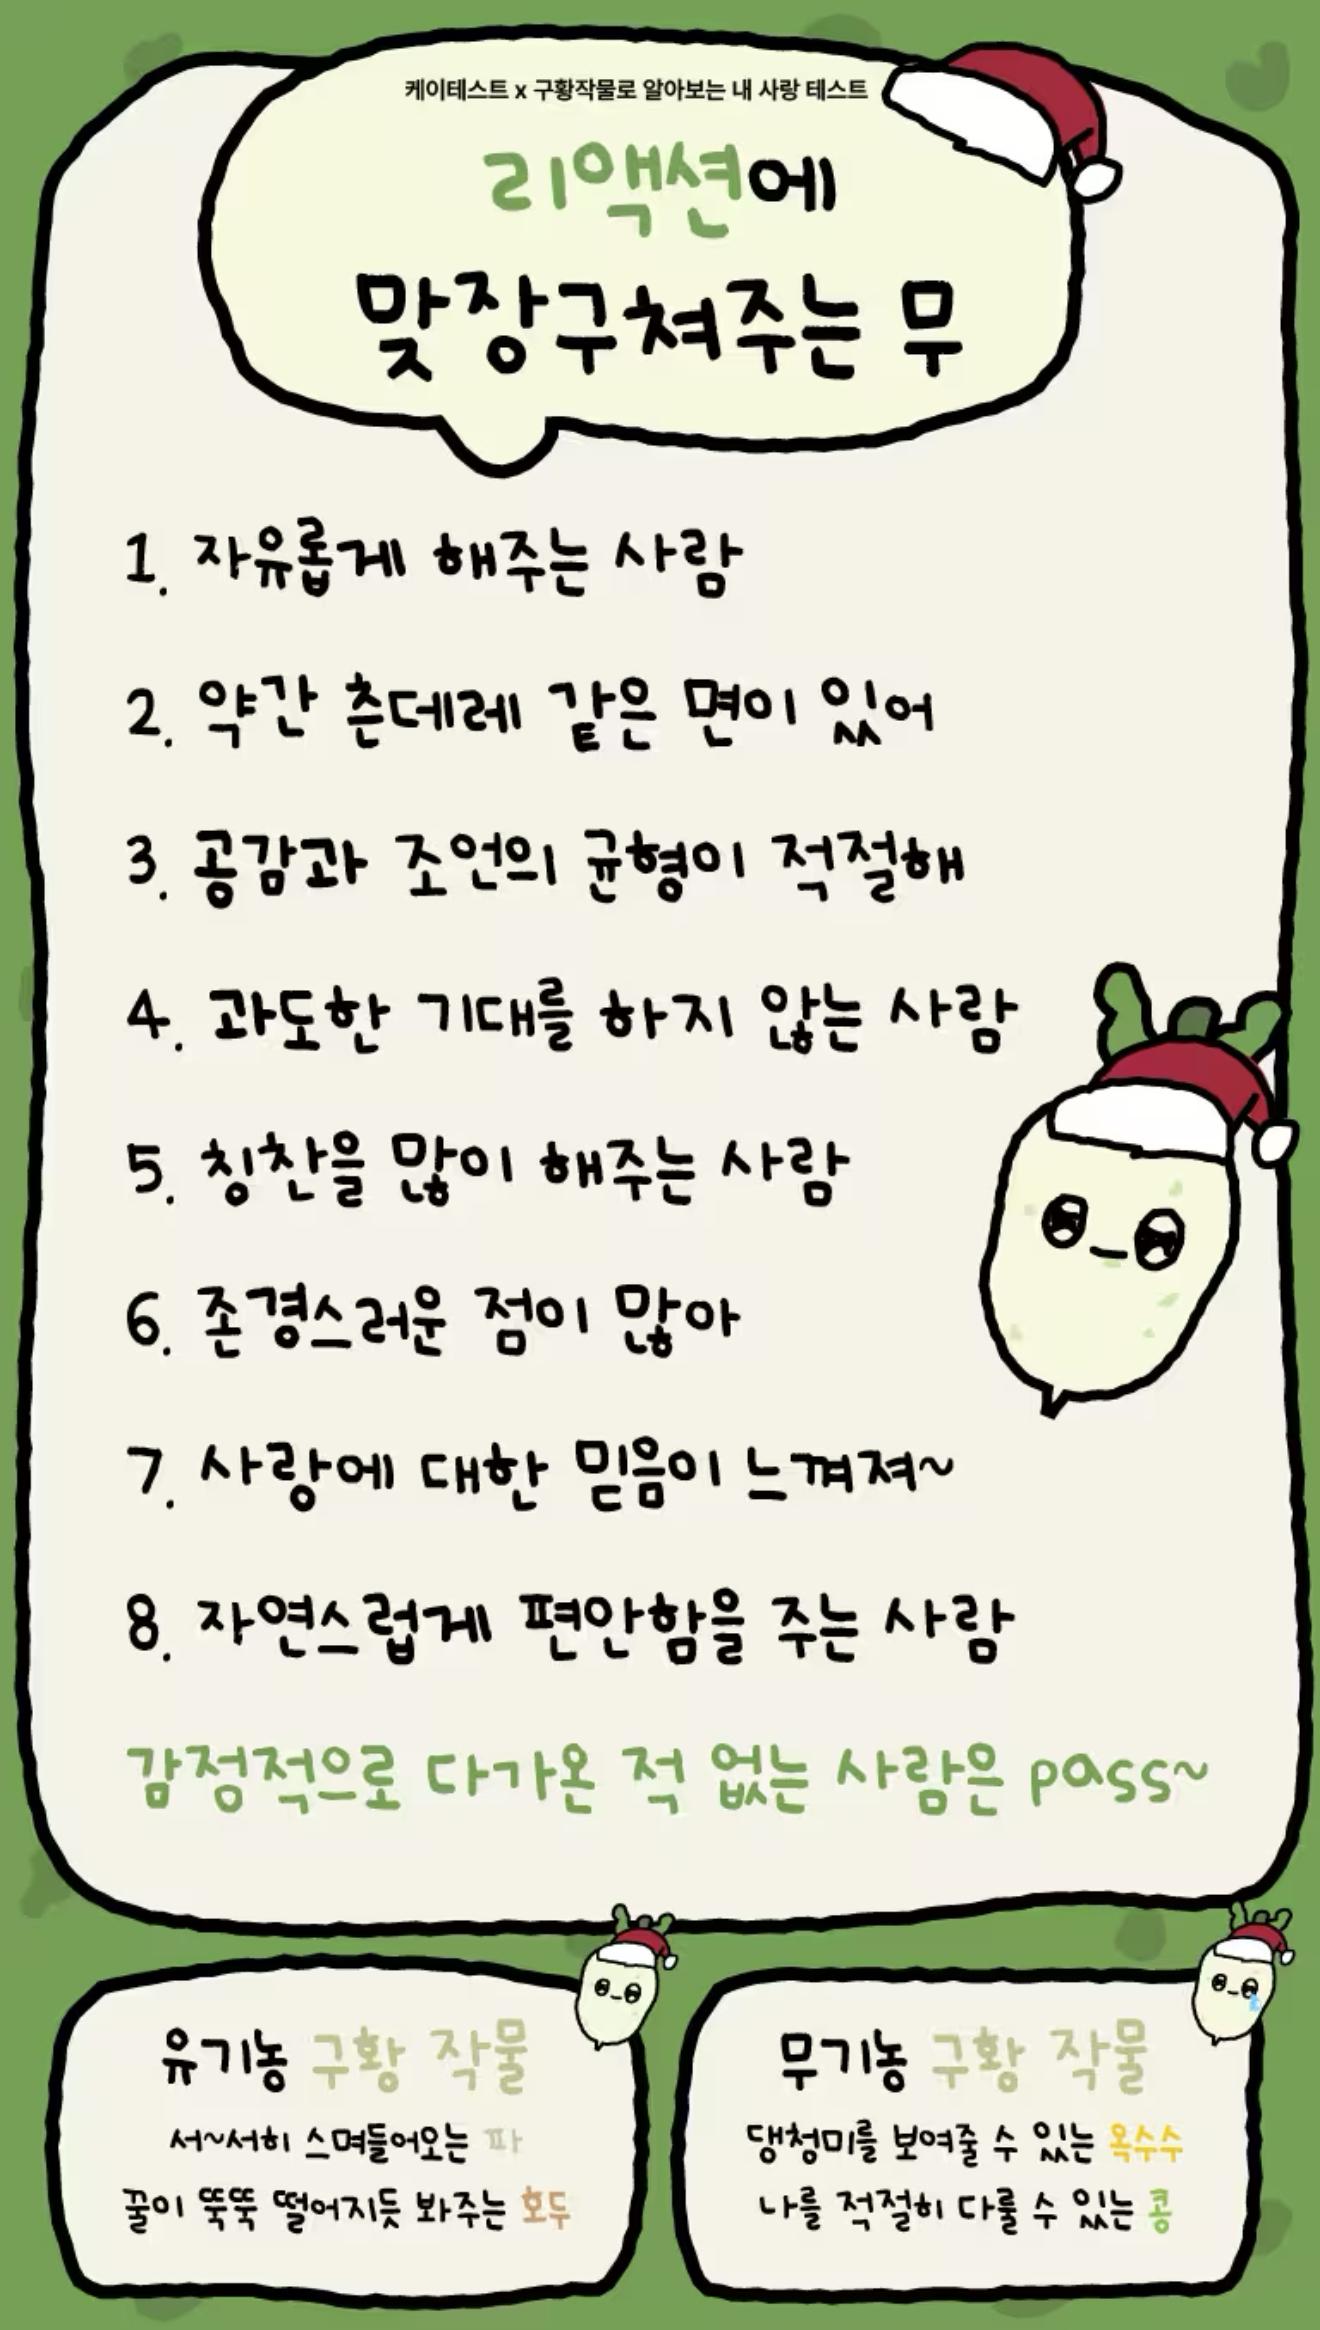 케이테스트 x 구황작물로 알아보는 내 사랑 테스트
리액션에
맞장구쳐주는 무
1. 자유롭게 해주는 사람
2. 약간 츤데레 같은 면이 있어
3. 공감과 조언의 균형이 적절해
4. 과도한 기대를 하지 않는 사람
5. 칭찬을 많이 해주는 사람
6. 존경스러운 점이 많아
7. 사랑에 대한 믿음이 느껴져~
8. 자연스럽게 편안함을 주는 사람
감정적으로 다가온 적 없는 사람은 pass~
유기농 구황 작물
서~서히 스며들어오는 파
꿀이 뚝뚝 떨어지듯 봐주는 호두
무기농 구황 작물
댕청미를 보여줄 수 있는 옥수수
나를 적절히 다룰 수 있는 콩